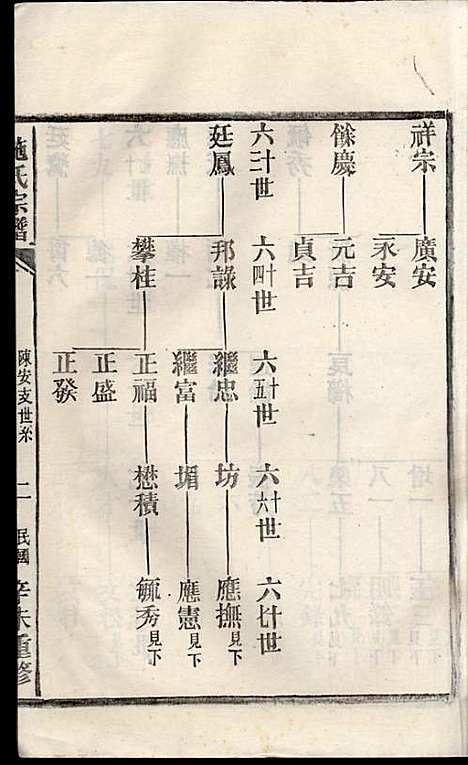 祥宗 廣安
永安
餘慶 元吉
貞吉
六十三世 六十四世 六十五世 六十六世 六十七世
廷鳳 邦祿 繼忠 坊 應撫見下
繼富 堳 應憲見下
攀桂 正福 懋積 毓秀見下
正盛
正發
施氏宗譜 陳安支世系 二 民國辛未重修